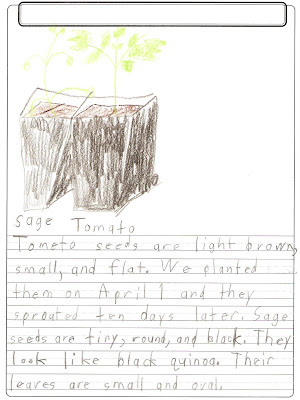 Sage Tomato
Tometo seeds are light brown,
small, and flat. We planted
them on April 1 and they
sprouted ten days later. Sage
seeds are tiny, round, and black. They
look like black quinoa. Their
leaves are small and oval.